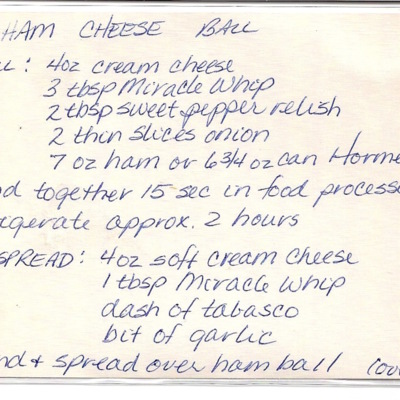 HAM CHEESE BALL
LL: 4oz cream cheese
3 tbsp Miracle Whip
2 tbsp sweet pepper relish
2 thin slices onion
7 oz ham or 6 3/4 oz can Horme
nd together 15 sec in food processe
igerate approx. 2 hours
SPREAD: 4oz soft cream cheese
1 tbsp Miracle Whip
dash of tabasco
bit of garlic
nd + spread over ham ball (ov